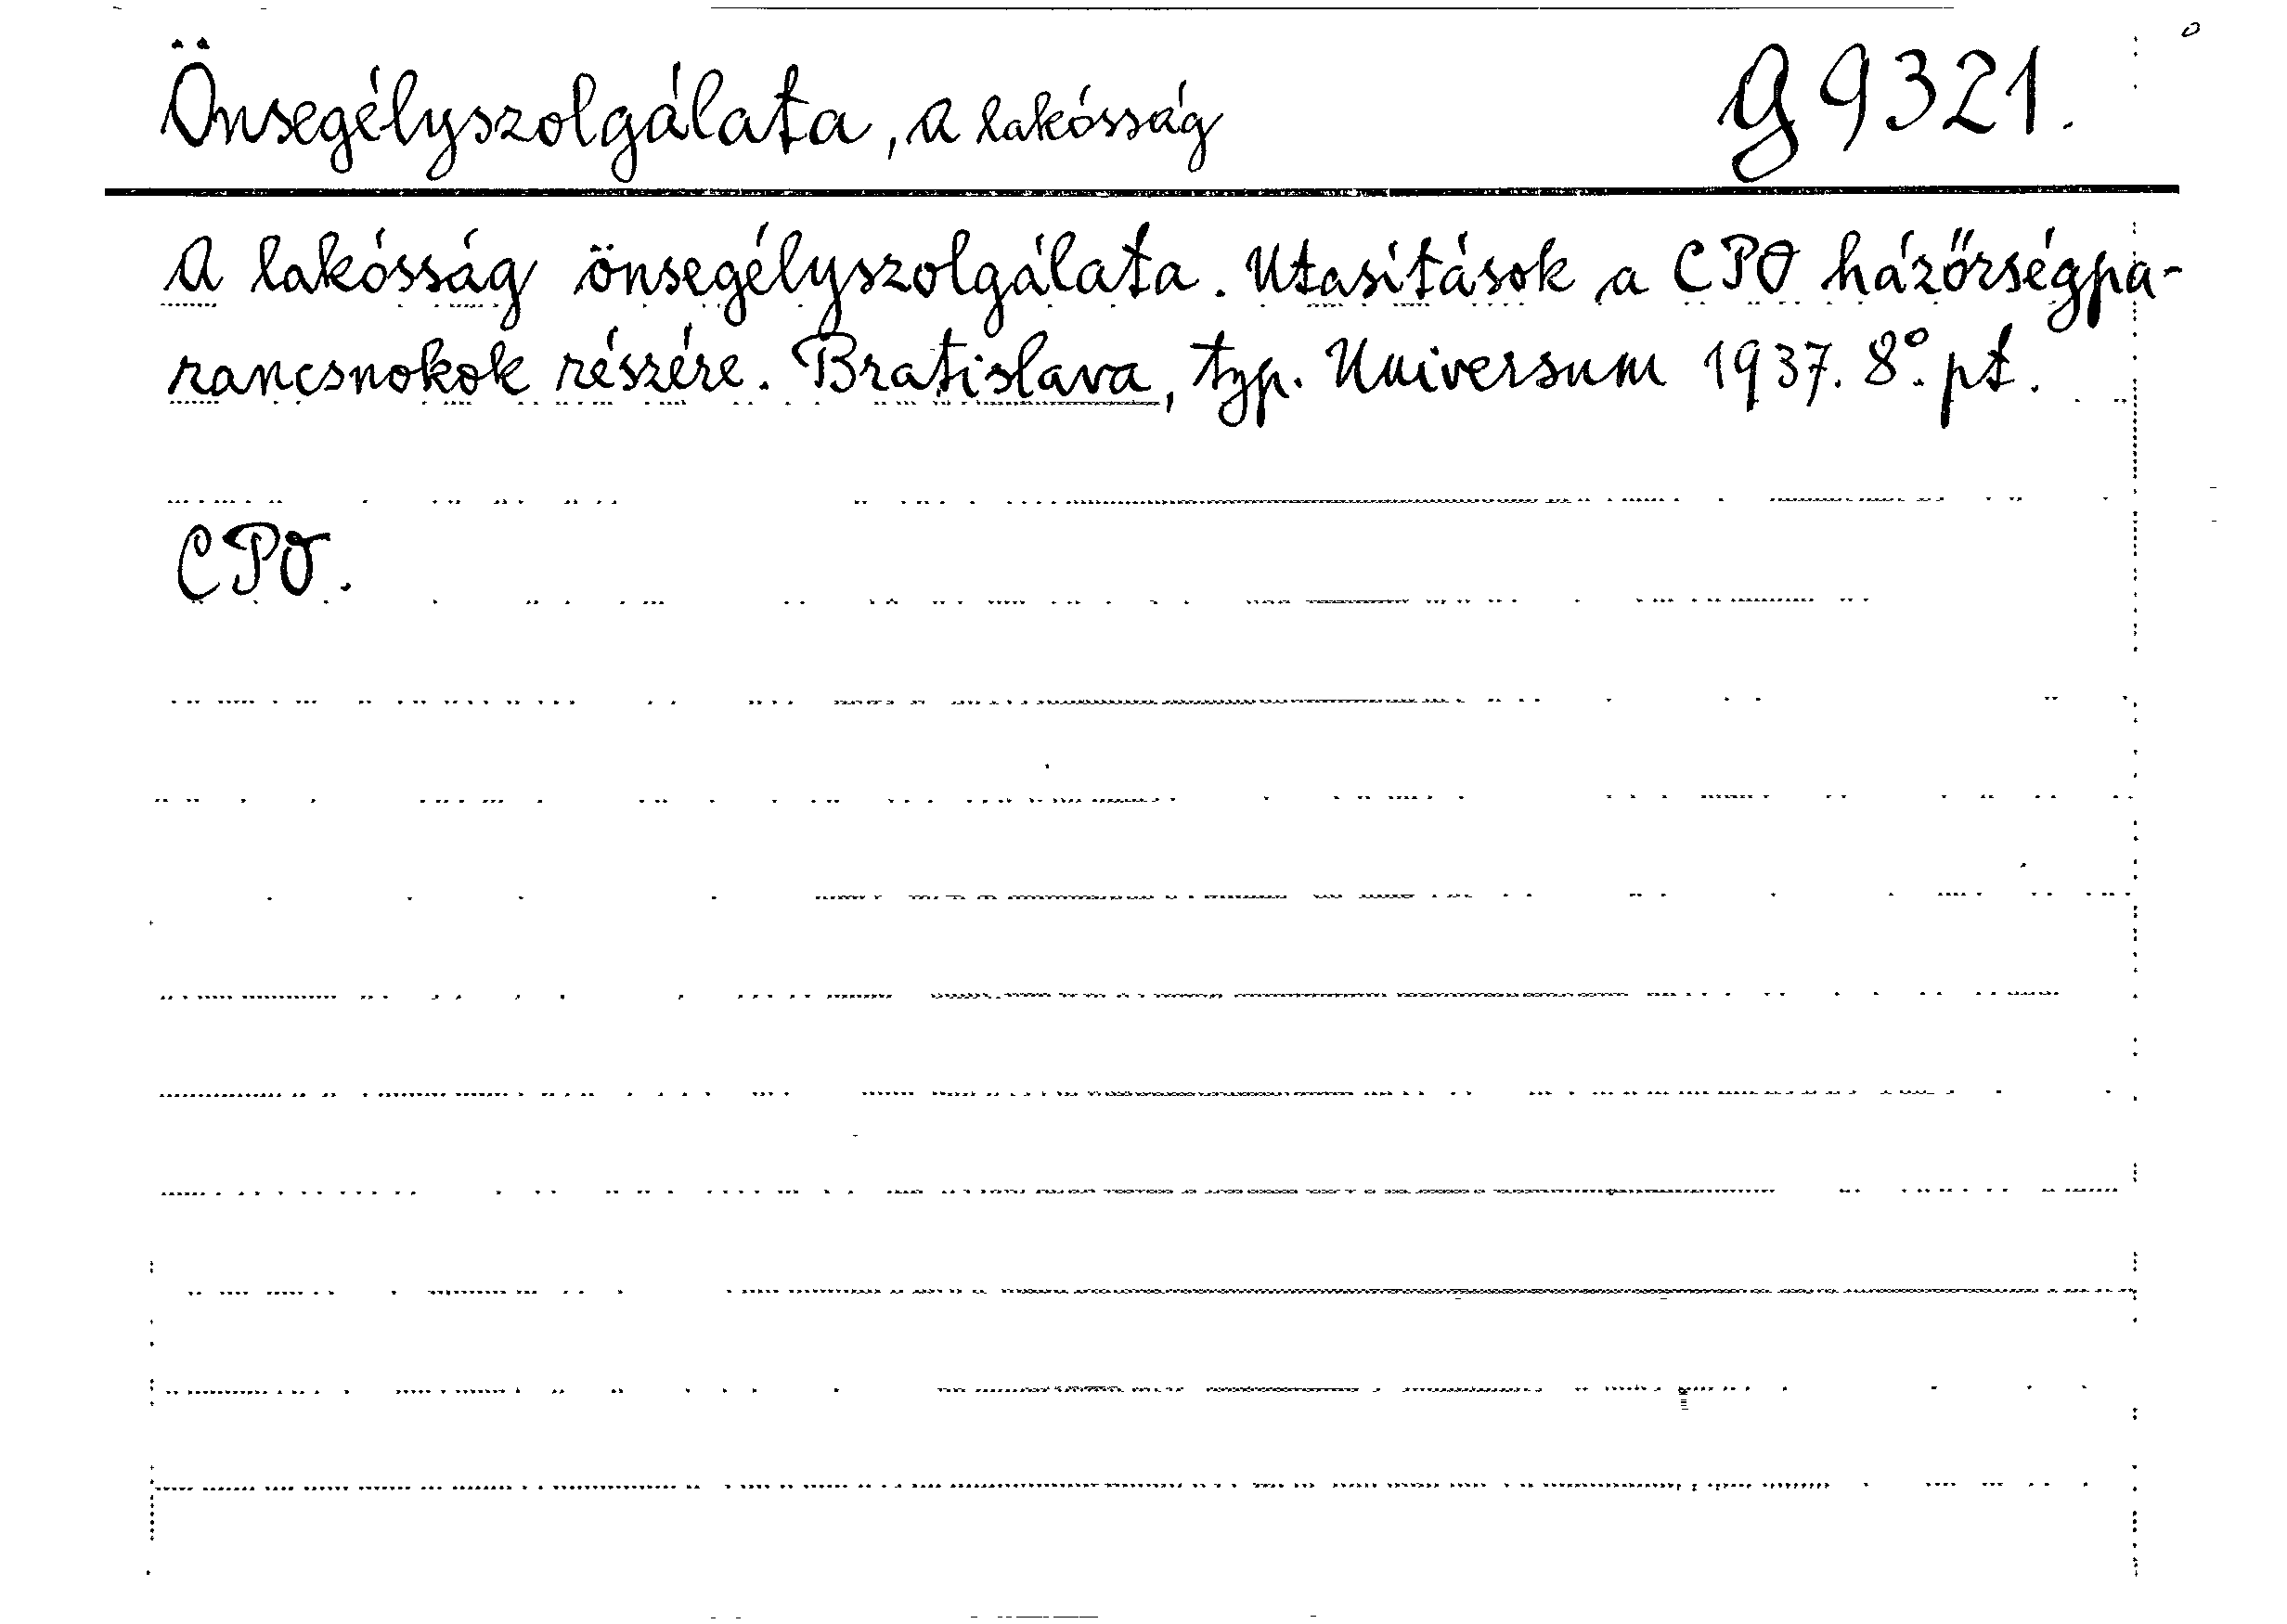 Önsegélyszolgálata, A lakósság G 9321.
A lakósság önsegélyszolgálata. Utasítások a CPO házőrségpa-
rancsnokok részére. Bratislava, typ. Universum 1937. 8°. pt.
CPO.